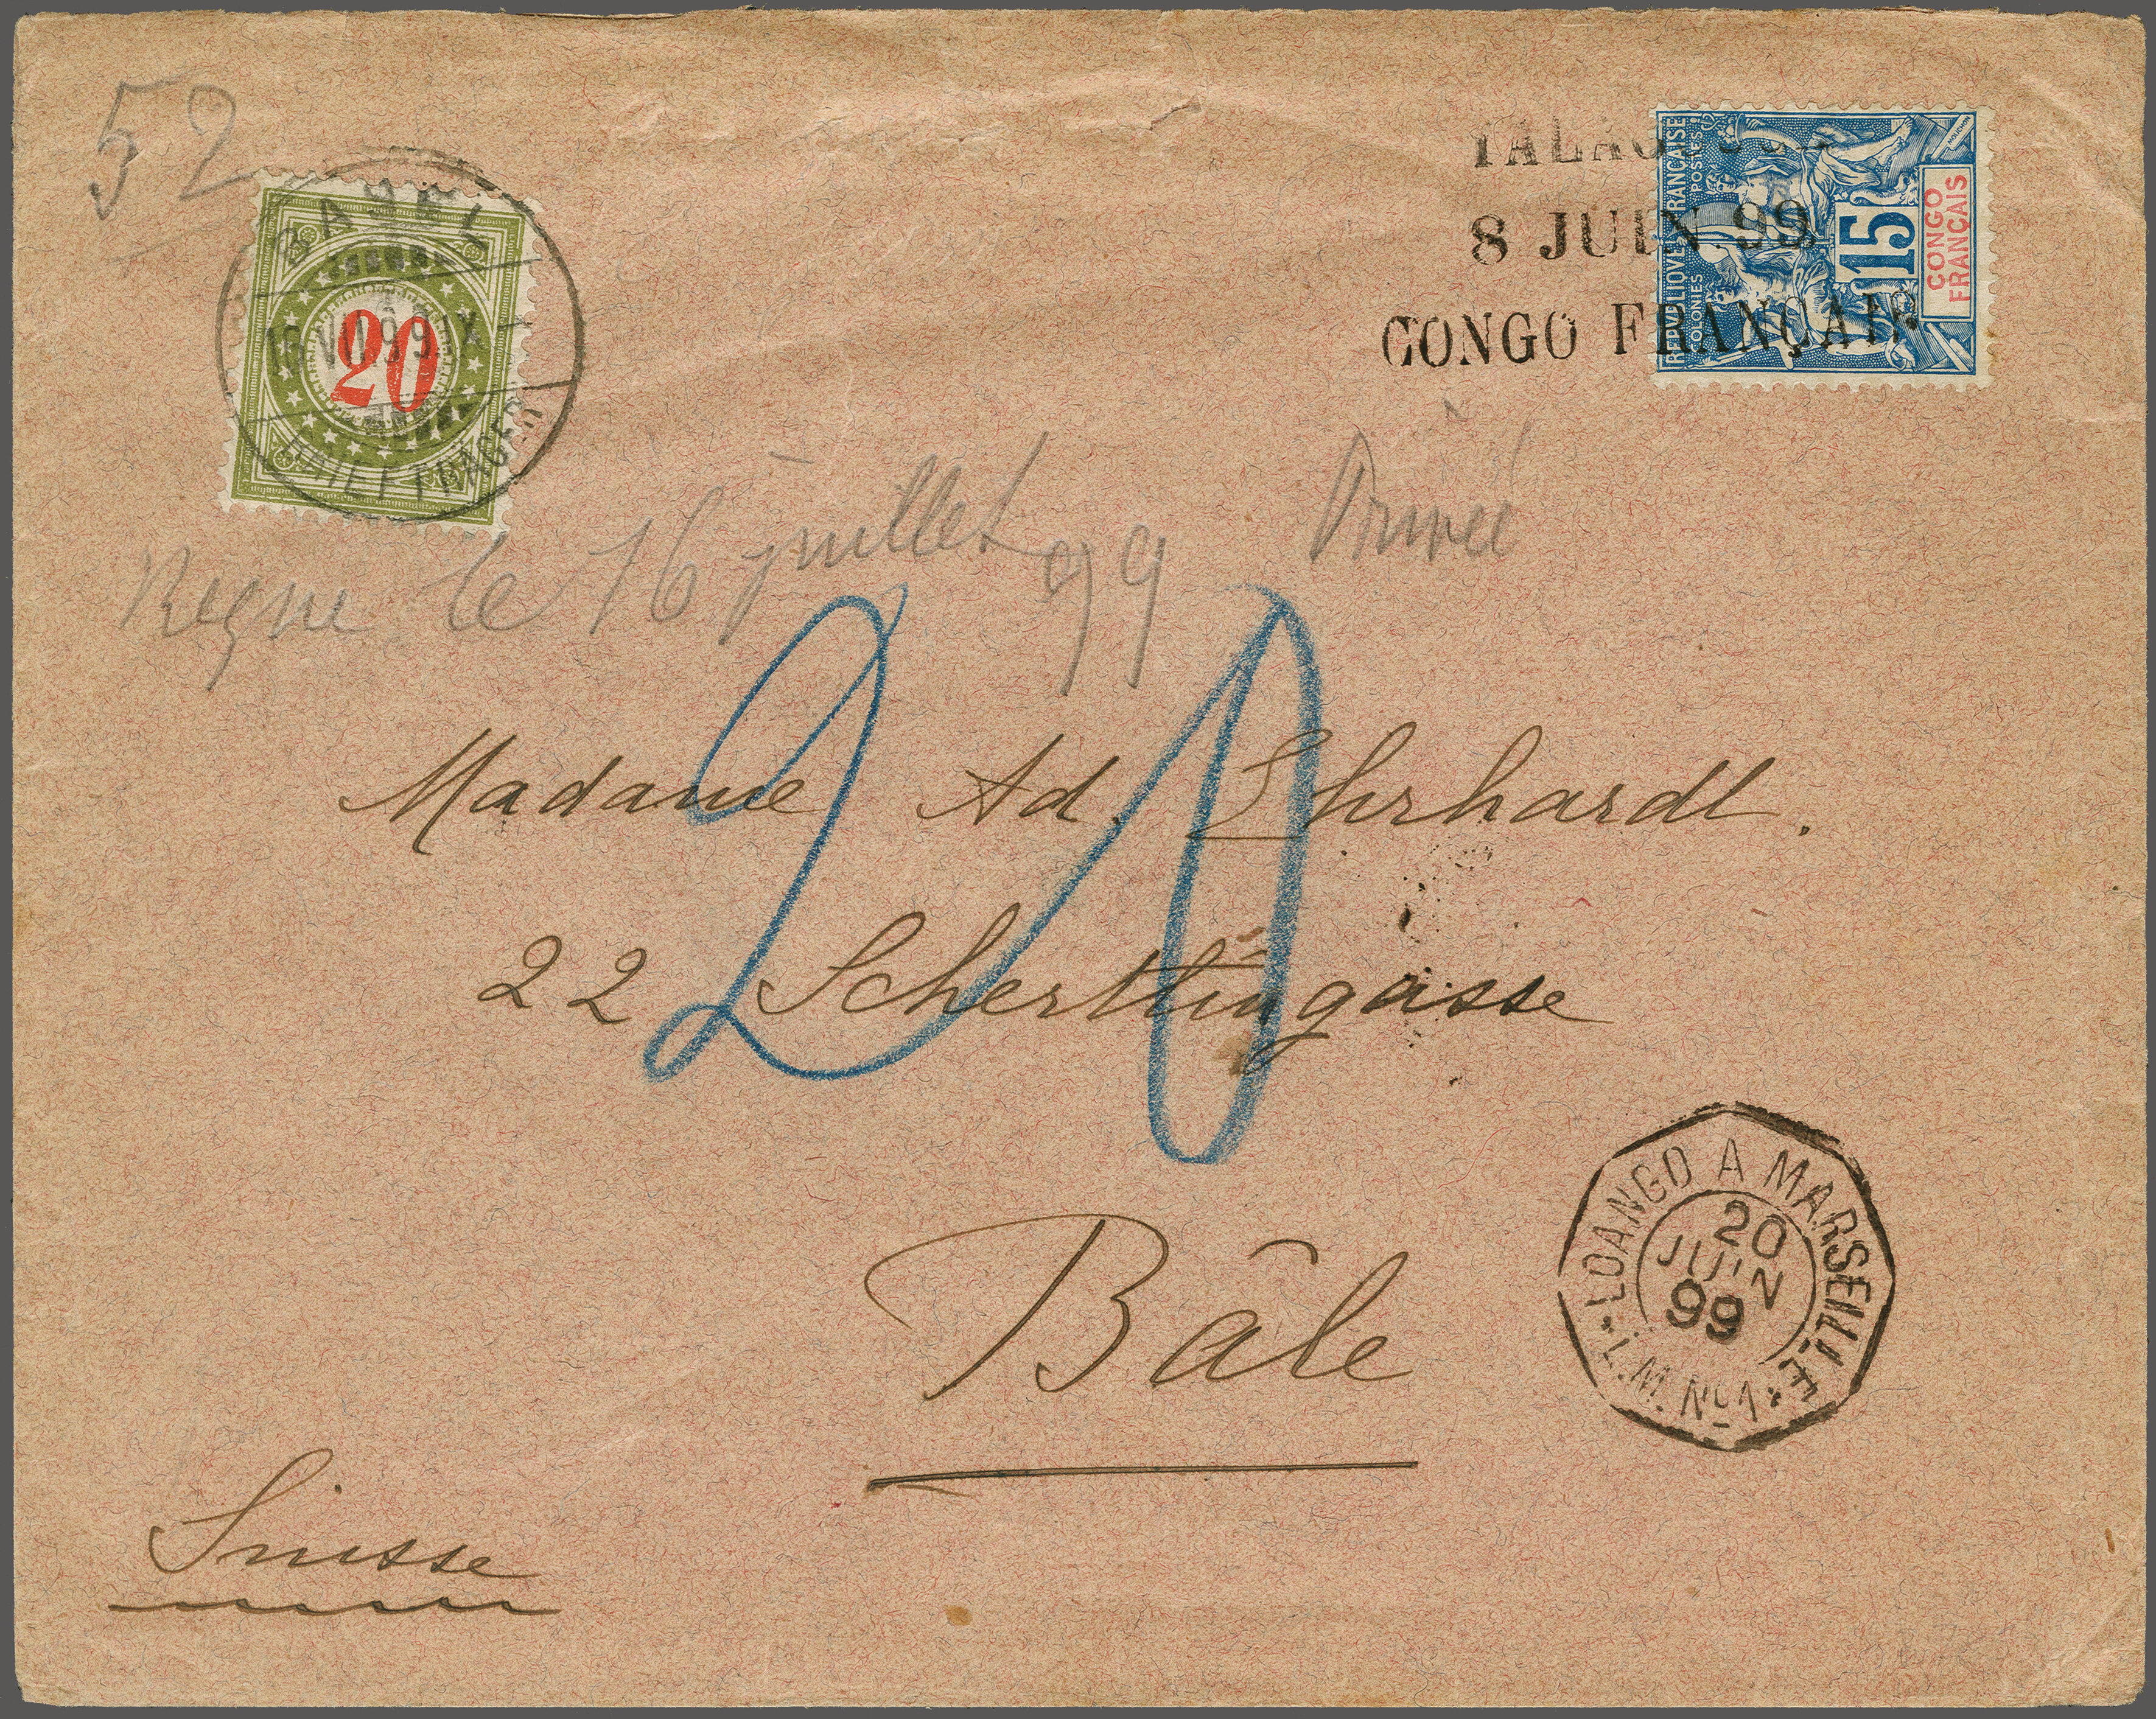 52
BASEL
16.VII.99.IX
BRIEFTRÄGER
20
8 JUIN 99
CONGO FRANÇAIS
REPVBLIQVE FRANÇAISE
COLONIES POSTES
15
CONGO
FRANÇAIS
le 16 juillet 99
20
Madame Ad. Ehrhardt.
22 Schertlingasse
Bâle
Suisse
LOANGO A MARSEILLE
20
JUIN
99
L.M. No 1